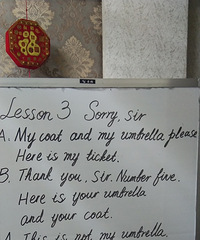 福
Lesson 3 Sorry, sir
A. My coat and my umbrella please
Here is my ticket.
B. Thank you, Sir. Number five.
Here is your umbrella
and your coat.
A This is not my umbrella.